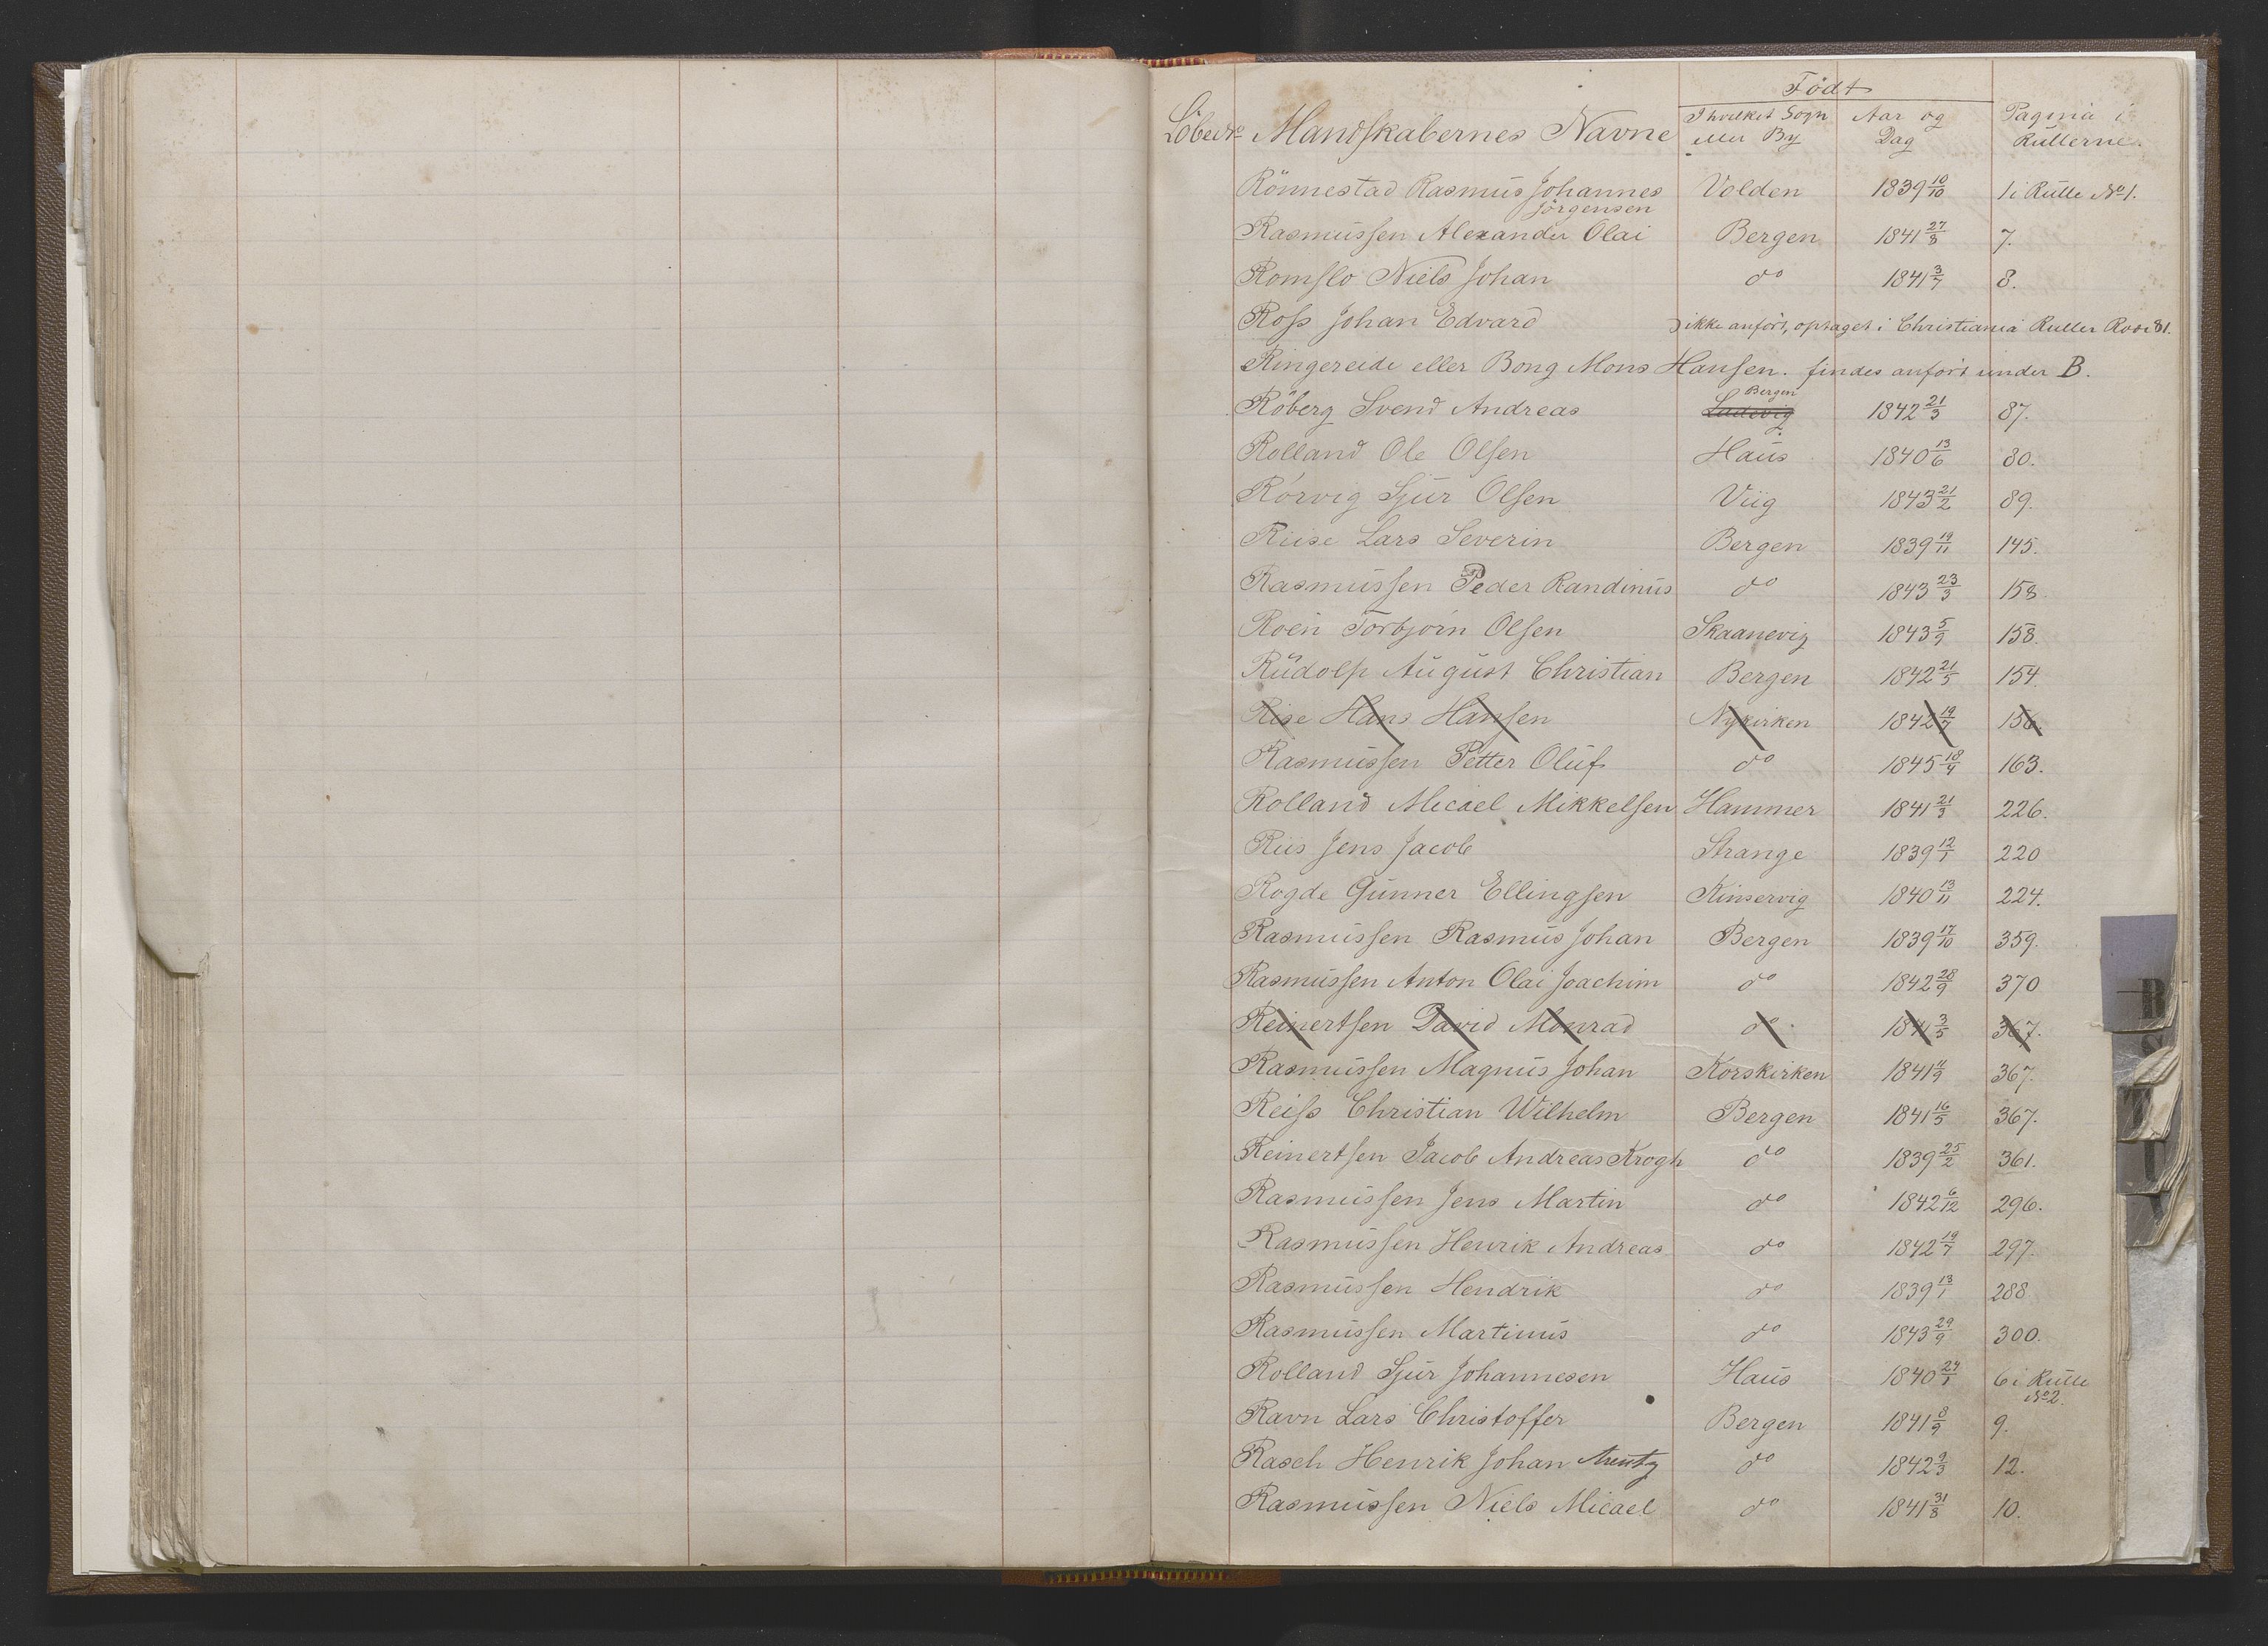 Födt
Löbe No Mandskabernes Navne I hvilket Sogn eller By Aar og Dag Pagina i Rullerne.
Rönnestad Rasmus Johannes Jörgensen Volden 1839 10/10 1 i Rulle No 1.
Rasmussen Alexander Olai Bergen 1841 27/8 7.
Romslo Niels Johan do 1841 3/7 8.
Ross Johan Edvard ikke anført, optaget i Christiania Ruller 81.
Ringereide eller Bong Mons Hansen. findes anført under B.
Röberg Svend Andreas Ladevig Bergen 1842 21/3 87.
Rolland Ole Olsen Haus 1840 13/6 80.
Rörvig Sjur Olsen Viig 1843 21/2 89.
Riise Lars Severin Bergen 1839 19/11 145.
Rasmussen Peder Randinus do 1843 23/3 158.
Roen Torbjörn Olsen Skaanevig 1843 5/9 158.
Rüdolp August Christian Bergen 1842 21/5 154.
Rise Hans Hansen Nykirken 1842 19/7 156.
Rasmussen Petter Oluf do 1845 18/4 163.
Rolland Micael Mikkelsen Hammer 1841 21/3 226.
Riis Jens Jacob Strange 1839 12/1 220
Rogde Gunner Ellingsen Kinservig 1840 13/11 224.
Rasmussen Rasmus Johan Bergen 1839 17/10 359.
Rasmussen Anton Olai Joachim do 1842 28/9 370
Reinertsen David Monrad do 1841 3/5 367.
Rasmussen Magnus Johan Korskirken 1841 4/9 367.
Reiss Christian Wilhelm Bergen 1841 16/5 367.
Reinertsen Jacob Andreas Krogh do 1839 25/2 361.
Rasmussen Jens Martin do 1842 6/12 296.
Rasmussen Henrik Andreas do 1842 19/7 297.
Rasmussen Hendrik do 1839 13/1 288
Rasmussen Martinus do 1843 29/9 300.
Rolland Sjur Johannesen Haus 1840 24/1 6 i Rulle No 2.
Ravn Lars Christoffer Bergen 1841 8/9 9.
Rasch Henrik Johan Arentz do 1842 9/3 12.
Rasmussen Niels Micael do 1841 31/8 10.
R